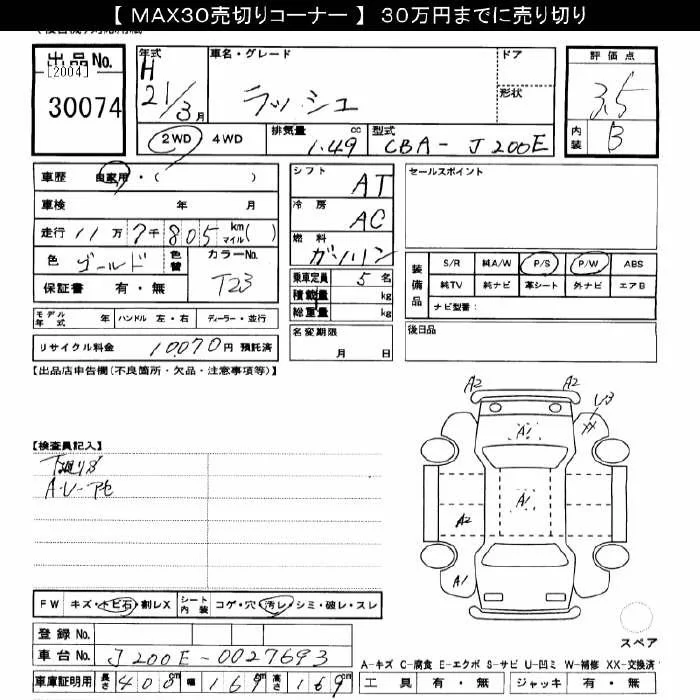 【 MAX30売切りコーナー 】 30万円までに売り切り
出品No.
[2004]
30074
年式
H
21/3月
車名・グレード
ラッシュ
ドア
形状
評価点
3.5
内装
B
2WD 4WD
排気量
1.49 cc
型式
CBA- J200E
車歴 自家用・( )
車検 年 月
走行 11万7千805 km マイル( )
色 ゴールド 色替
カラーNo.
T23
保証書 有・無
シフト
AT
冷房
AC
燃料
ガソリン
乗車定員 5名
積載量 kg
総重量 kg
名変期限
月 日
セールスポイント
装備品
S/R 純A/W P/S P/W ABS
純TV 純ナビ 革シート 外ナビ エアB
ナビ型番:
後日品
モデル年式 年 ハンドル 左・右 ディーラー・並行
リサイクル料金 10070円 預託済
【出品店申告欄(不良箇所・欠品・注意事項等)】
【検査員記入】
下廻りサ
A・U-アセ
A2 A2
A1
XX
A1
A2
A1
スペア
FW キズ・トビ石・割レX シート内装 コゲ・穴・汚レ・シミ・破レ・スレ
登録No.
車台No. J200E-0027693
車庫証明用 長さ 408cm 幅 169cm 高さ 169cm
A-キズ C-腐食 E-エクボ S-サビ U-凹ミ W-補修 XX-交換済
工具 有・無 ジャッキ 有・無